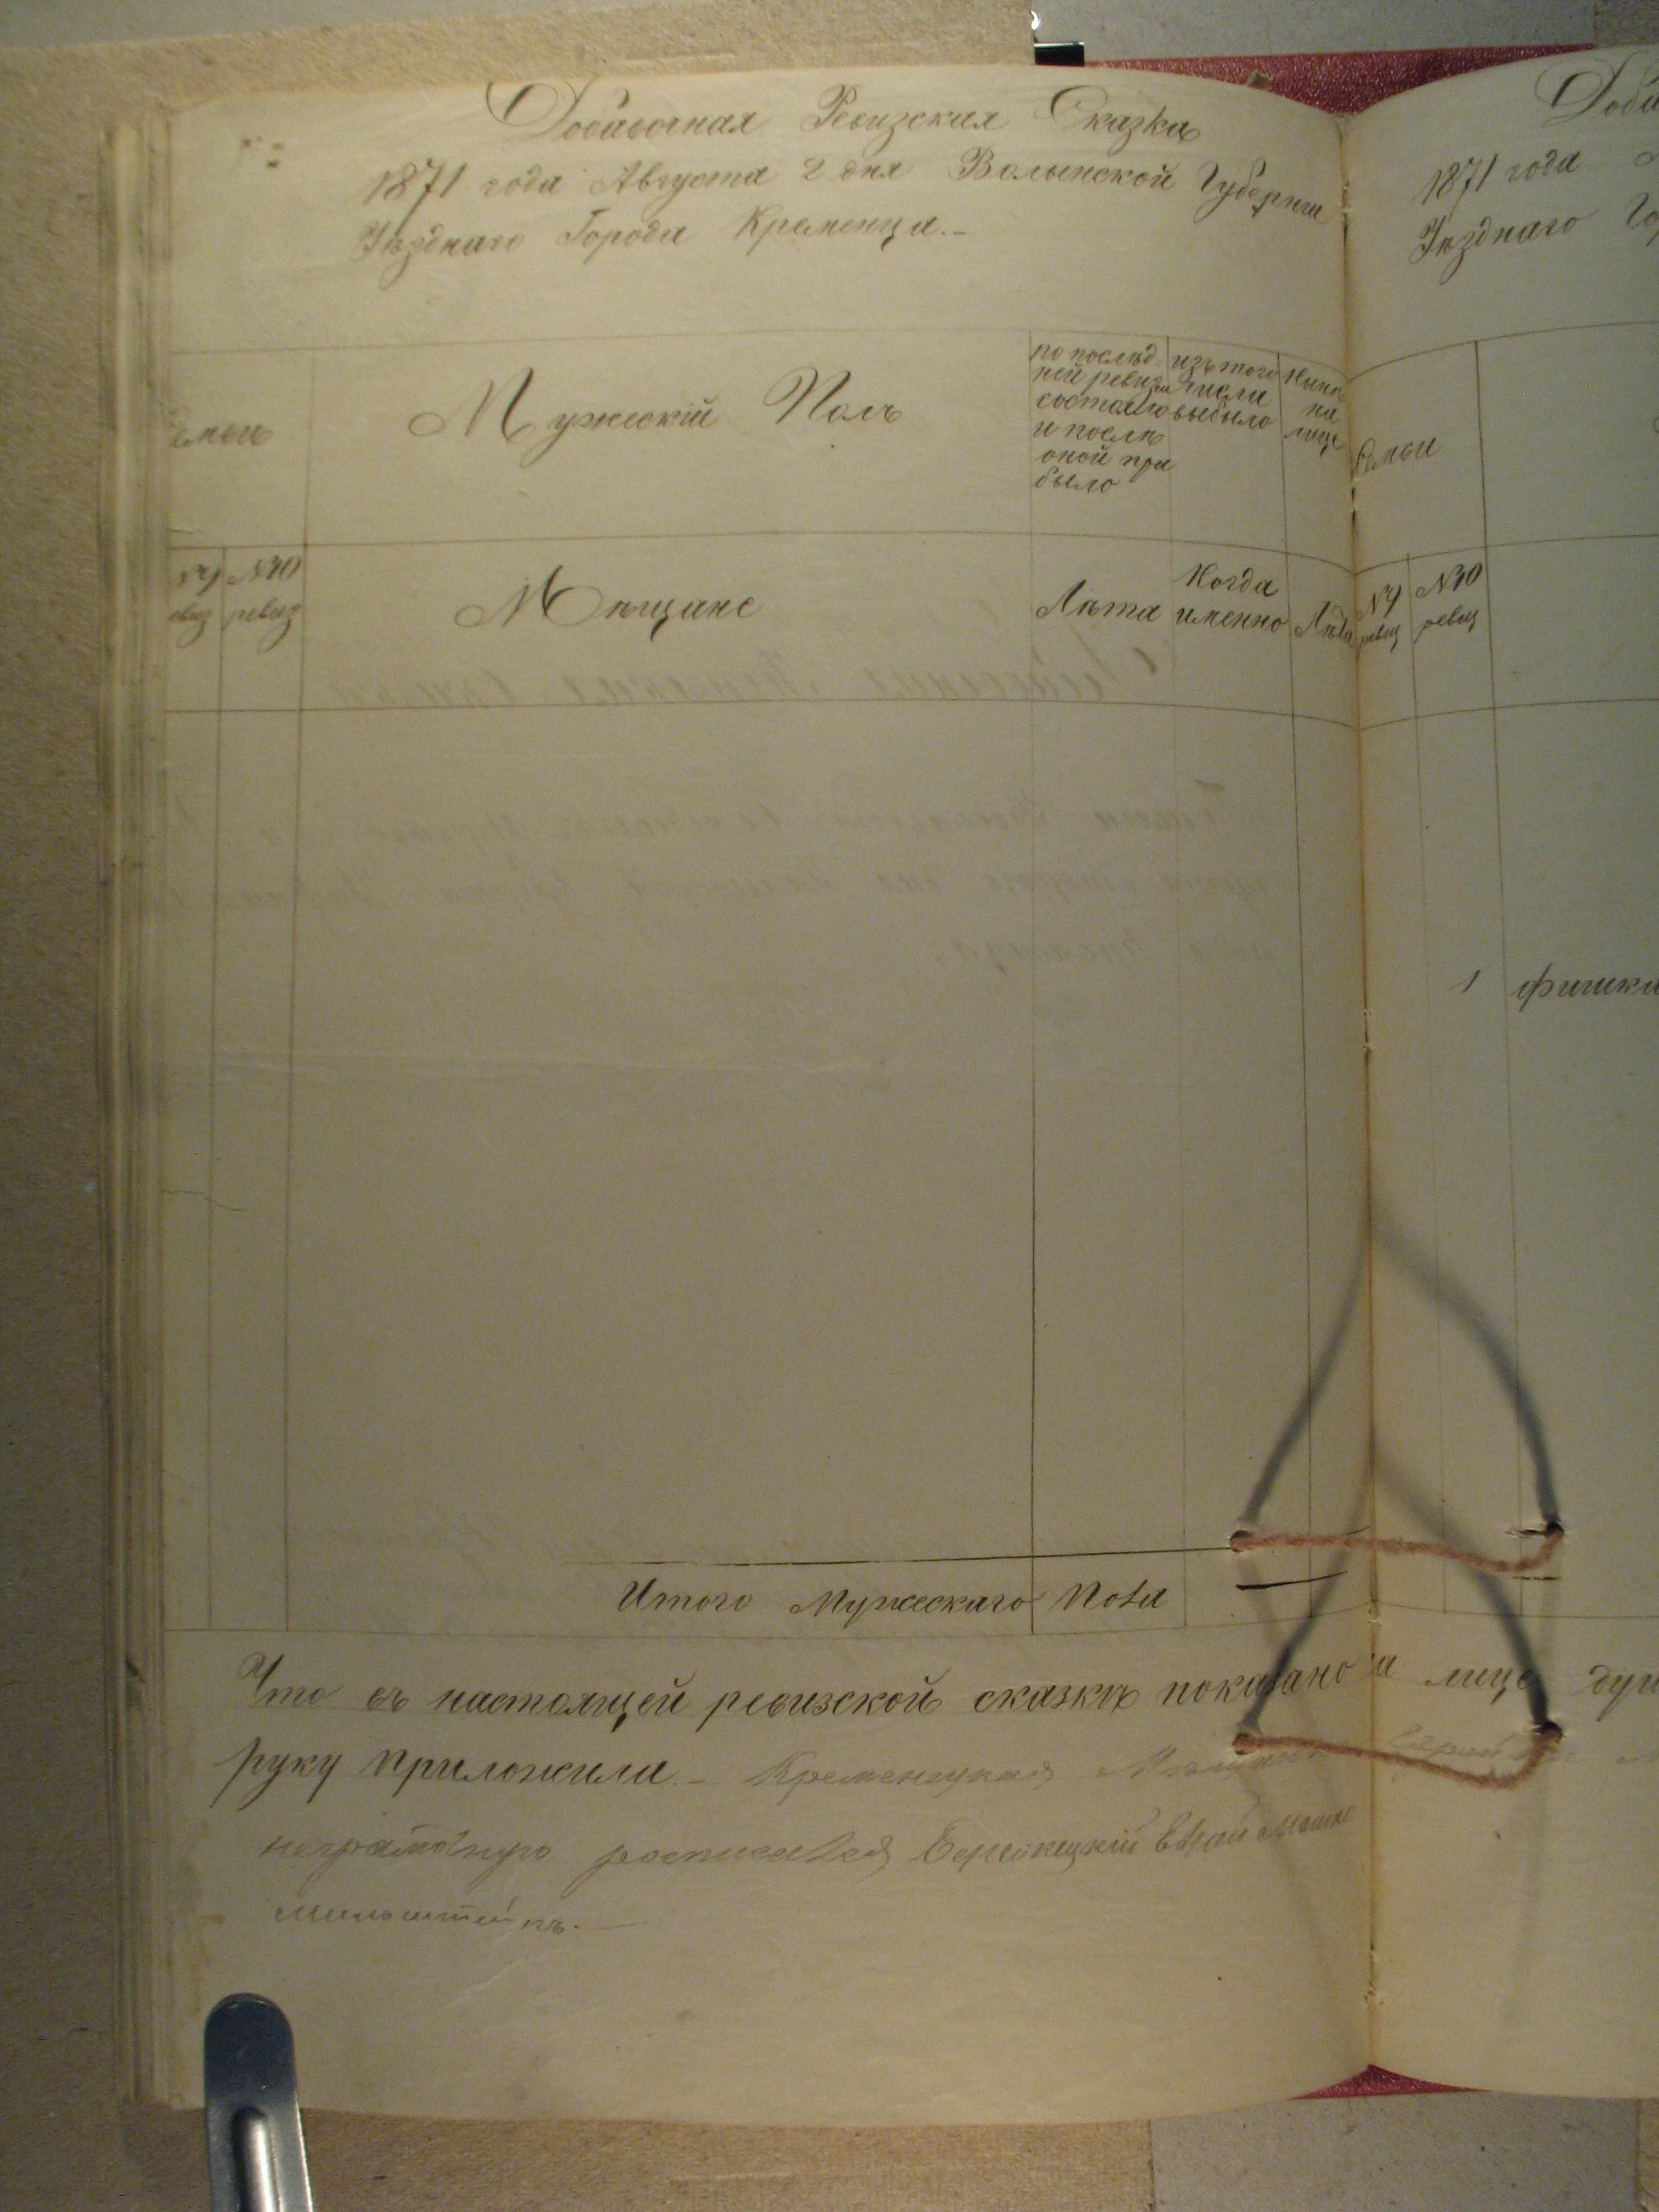 Добавочная Ревизская Сказка
1871 года Августа 2 дня Волынской Губернiи
Уѣзднаго Города Кременца.-
емьи
Мужескiй Полъ
по послѣд-
ней ревизiи
состояло
и послѣ
оной при
было
изъ того
числа
выбыло
Нынѣ
на
лице
№ 10
ревиз
Мѣщане
Лѣта
Когда
именно
Лѣта
Итого Мужескаго Пола
Что въ настоящей ревизской сказкѣ показано на лице душ
руку приложила.- Кременецкая
неграмотную росписался Еврей Мошко
Мильштейнъ.-
Доба
1871 года
Уѣзднаго Го
Семьи
№ 9
ревиз
№ 10
ревиз
1 Фишка